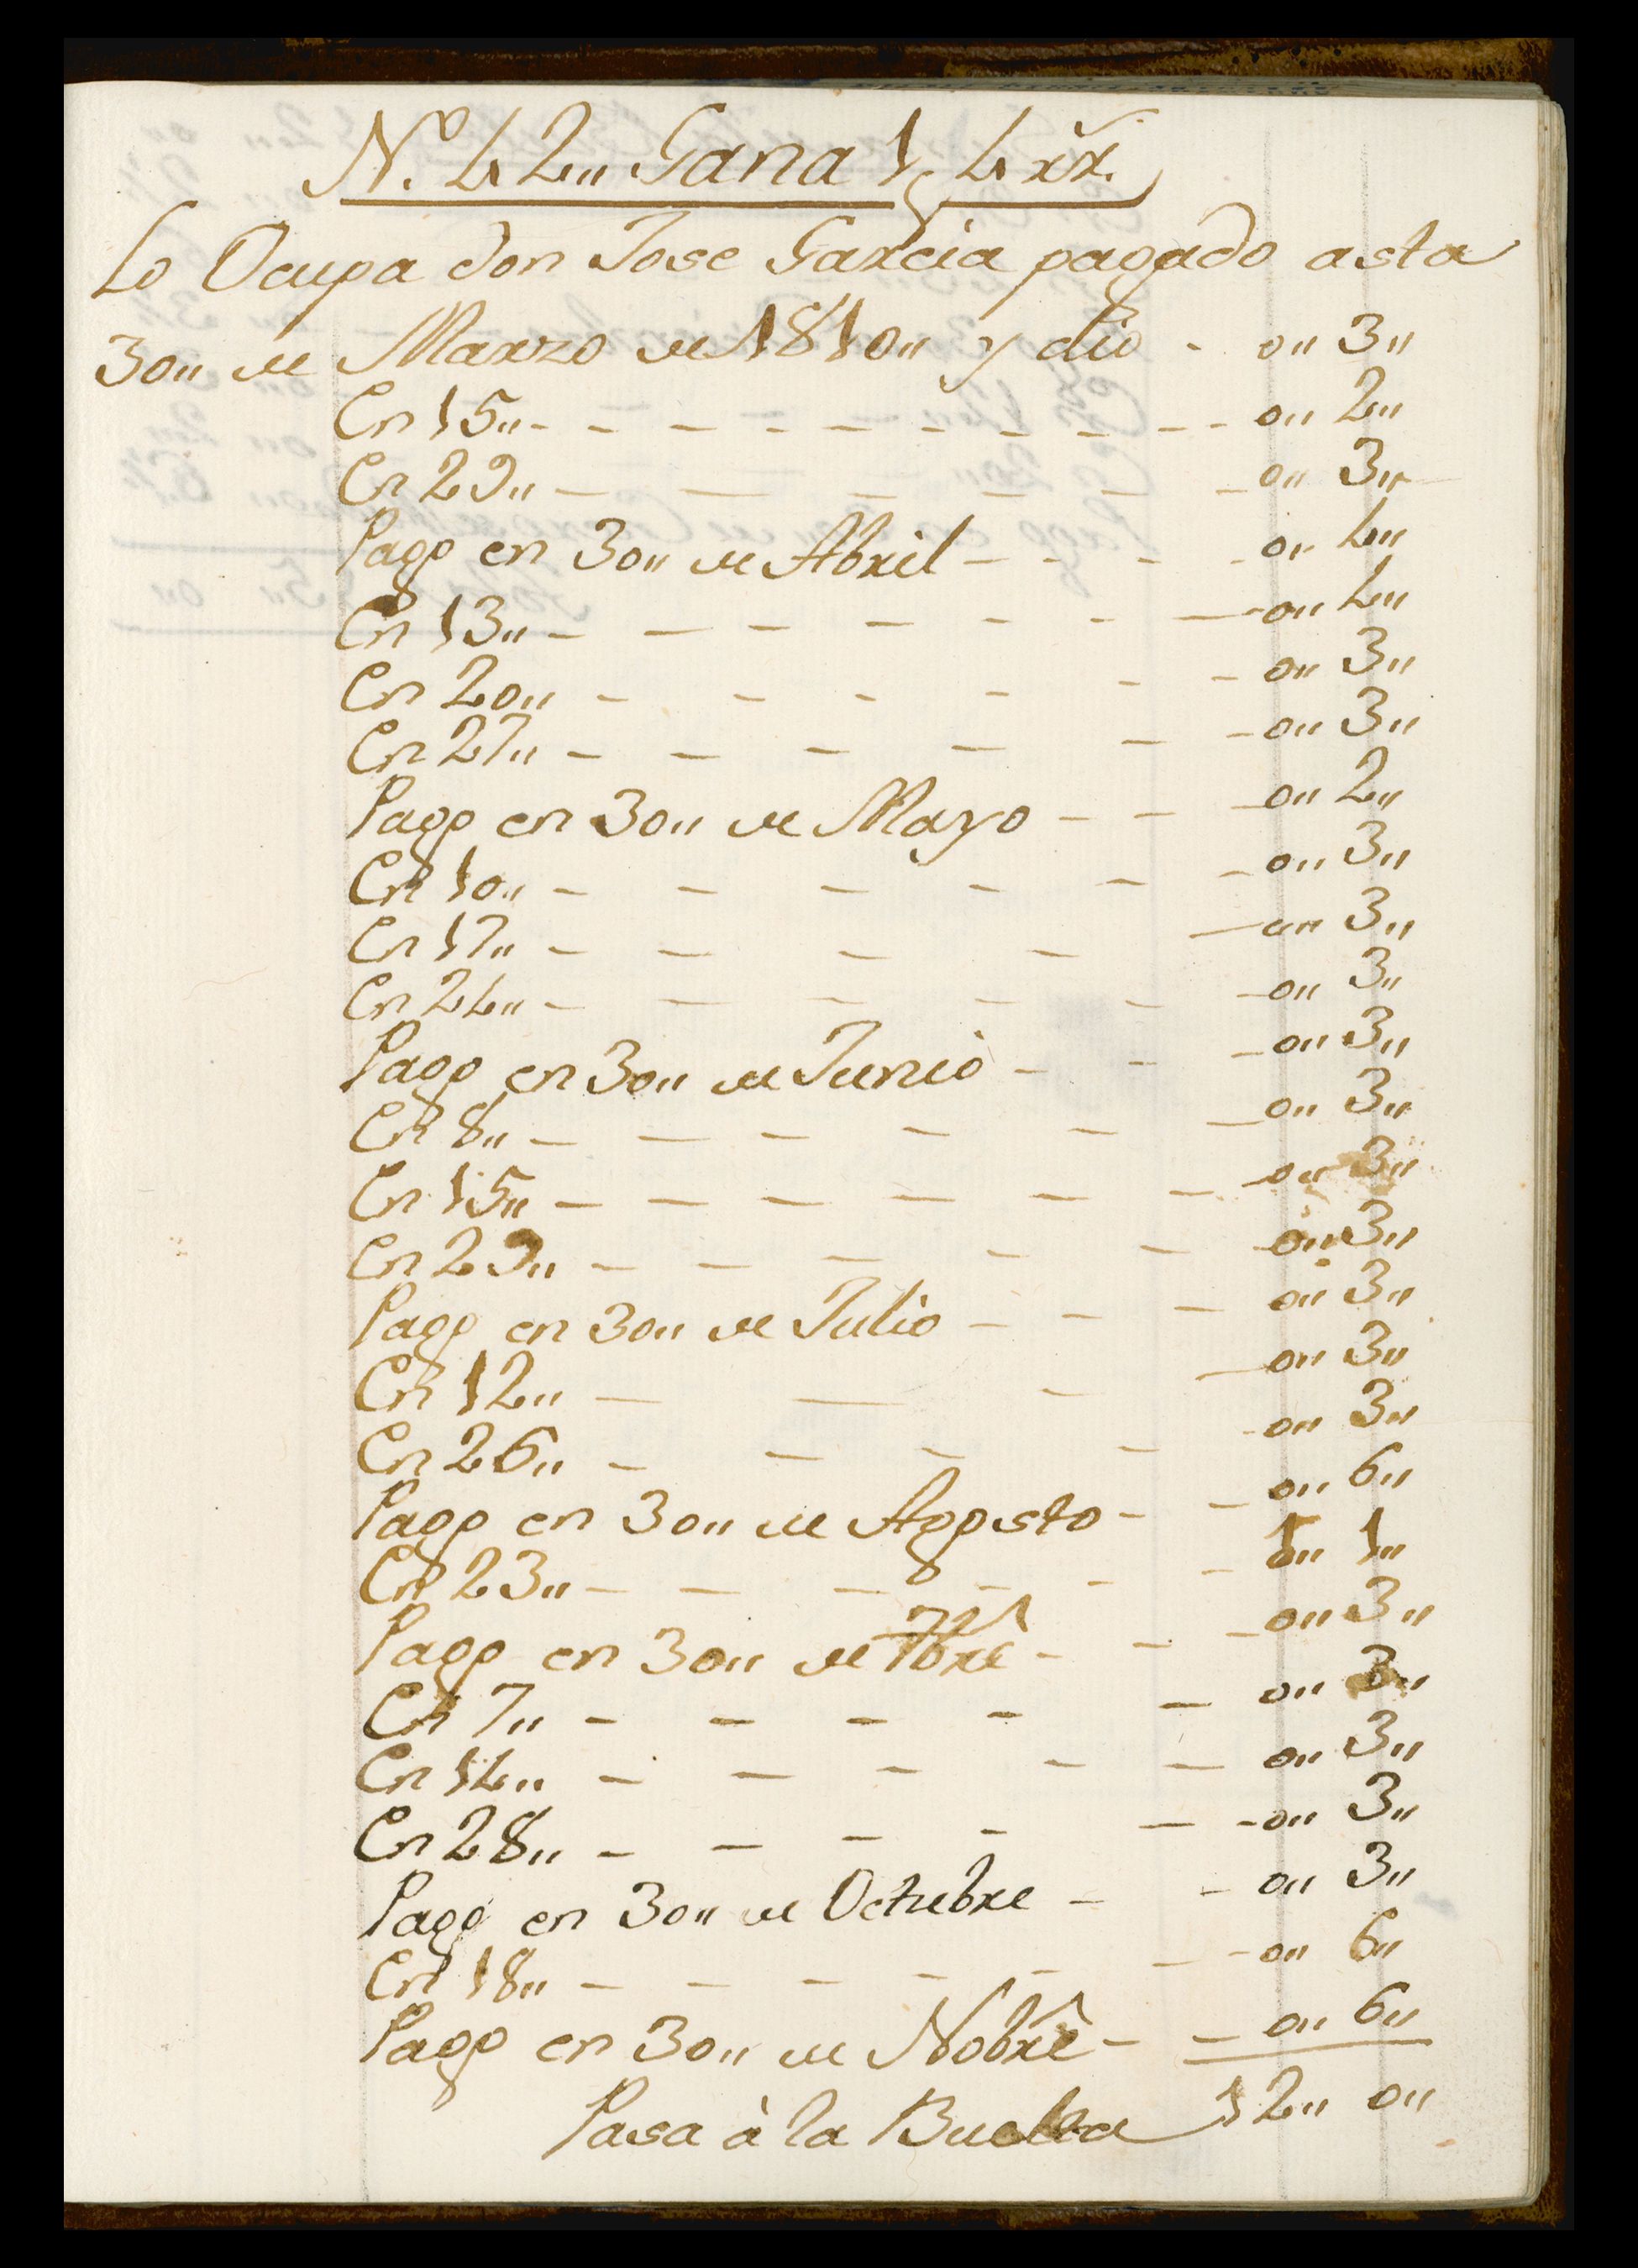 N.º 42,, Gana 1 ps 4 rr.s
Lo Ocupa don Jose Garcia pagado asta
30,, de Marzo de 1810,, y dio - 0,, 3,,
En 15,, - - - - - - - - - - 0,, 2,,
En 29,, - - - - - - 0,, 3,,
Pago en 30,, de Abril - - - - 0,, 4,,
En 13,, - - - - - - - 0,, 4,,
En 20,, - - - - - - 0,, 3,,
En 27,, - - - - - - 0,, 3,,
Pago en 30,, de Mayo - - - 0,, 2,,
En 10,, - - - - - - 0,, 3,,
En 17,, - - - - - 0,, 3,,
En 24,, - - - - - - 0,, 3,,
Pago en 30,, de Junio - - - 0,, 3,,
En 8,, - - - - - - 0,, 3,,
En 15,, - - - - - - - 0,, 3,,
En 29,, - - - - - - 0,, 3,,
Pago en 30,, de Julio - - - 0,, 3,,
En 12,, - - - - 0,, 3,,
En 26,, - - - - - 0,, 3,,
Pago en 30,, de Agosto - - 0,, 6,,
En 23,, - - - - - - 1,, 1,,
Pago en 30,, de 7bre - - - 0,, 3,,
En 7,, - - - - - 0,, 3,,
En 14,, - - - - - 0,, 3,,
En 28,, - - - - - - 0,, 3,,
Pago en 30,, de Octubre - - 0,, 3,,
En 18,, - - - - - - - 0,, 6,,
Pago en 30,, de Nobre - - 0,, 6,,
Pasa à la Buelta 12,, 0,,